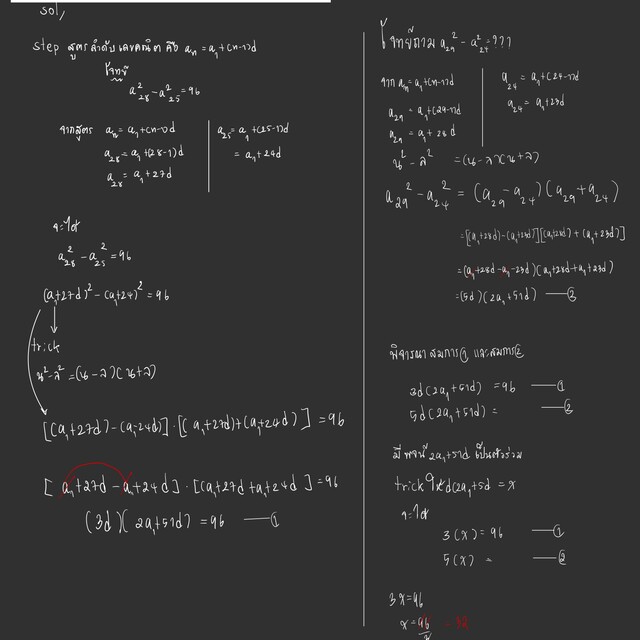 sol,
step สูตรลำดับเลขคณิต คือ aₙ = a₁+(n-1)d
โจทย์
a²₂₈ - a²₂₅ = 96
จากสูตร aₙ = a₁+(n-1)d
a₂₈ = a₁+(28-1)d
a₂₈ = a₁+27d
a₂₅ = a₁+(25-1)d
= a₁+24d
จะได้
a²₂₈ - a²₂₅ = 96
(a₁+27d)² - (a₁+24)² = 96
trick
น²-ล² = (น-ล)(น+ล)
[(a₁+27d)-(a₁-24d)]·[(a₁+27d)+(a₁+24d)] = 96
[a₁+27d - a₁+24d]·[(a₁+27d+a₁+24d] = 96
(3d)(2a₁+51d) = 96 — ①
โจทย์ถาม a₂₉² - a²₂₄ = ???
จาก aₙ = a₁+(n-1)d
a₂₉ = a₁+(29-1)d
a₂₉ = a₁+28d
a₂₄ = a₁+(24-1)d
a₂₄ = a₁+23d
น²-ล² = (น-ล)(น+ล)
a₂₉² - a₂₄² = (a₂₉-a₂₄)(a₂₉+a₂₄)
= [(a₁+28d)-(a₁+23d)][(a₁+28d)+(a₁+23d)]
= (a₁+28d-a₁-23d)(a₁+28d+a₁+23d)
= (5d)(2a₁+51d) — ②
พิจารณา สมการ① และสมการ②
3d(2a₁+51d) = 96 — ①
5d(2a₁+51d) = — ②
มีพจน์ 2a₁+51d เป็นตัวร่วม
trick ให้ d(2a₁+5d = x
จะได้
3(x) = 96 — ①
5(x) = — ②
3x = 96
x = 96/3 = 32